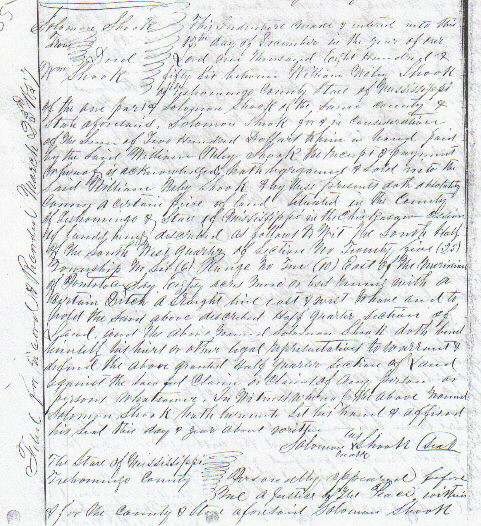 Solomon Shook
Deed
Wm Shook
This Indenture made & entered into this
15th day of December in the year of our
Lord one thousand Eight hundred &
fifty six between William Wiley Shook
of Tishomingo County State of Mississippi
of the one part & Solomon Shook of the same county &
State aforesaid, Solomon Shook for & in consideration
of the sum of Two Hundred Dollars to him in hand paid
by the said William Wiley Shook the receipt & payment
whereof is acknowledged, hath bargained & sold unto the
said William Wiley Shook & by these presents doth absolutely
convey a certain piece of land situated in the County
of Tishomingo & State of Mississippi in the Chickasaw cession
of lands being described as follows to wit the South half
of the South West quarter of Section No Twenty five (25)
Township No Six (6) Range No (10) East of the Meridian
of Pontotoc eighty acres more or less running with a
certain Ditch a straight line east & west to have and to
hold the same above described Half quarter section of
Land, and the above named Solomon Shook doth bind
himself his heirs or other legal representatives to warrant &
defend the above granted half quarter section of Land
against the lawful Claim or Claims of any person or
persons whatsoever. In Witness whereof the above named
Solomon Shook hath hereunto set his hand & affixed
his seal this day & year above written
Solomon his x mark Shook (Seal)
The State of Mississippi
Tishomingo County
Personally appeared before
me a Justice of the Peace within
& for the County & State aforesaid Solomon Shook
Filed for record & Recorded March 23d 1857